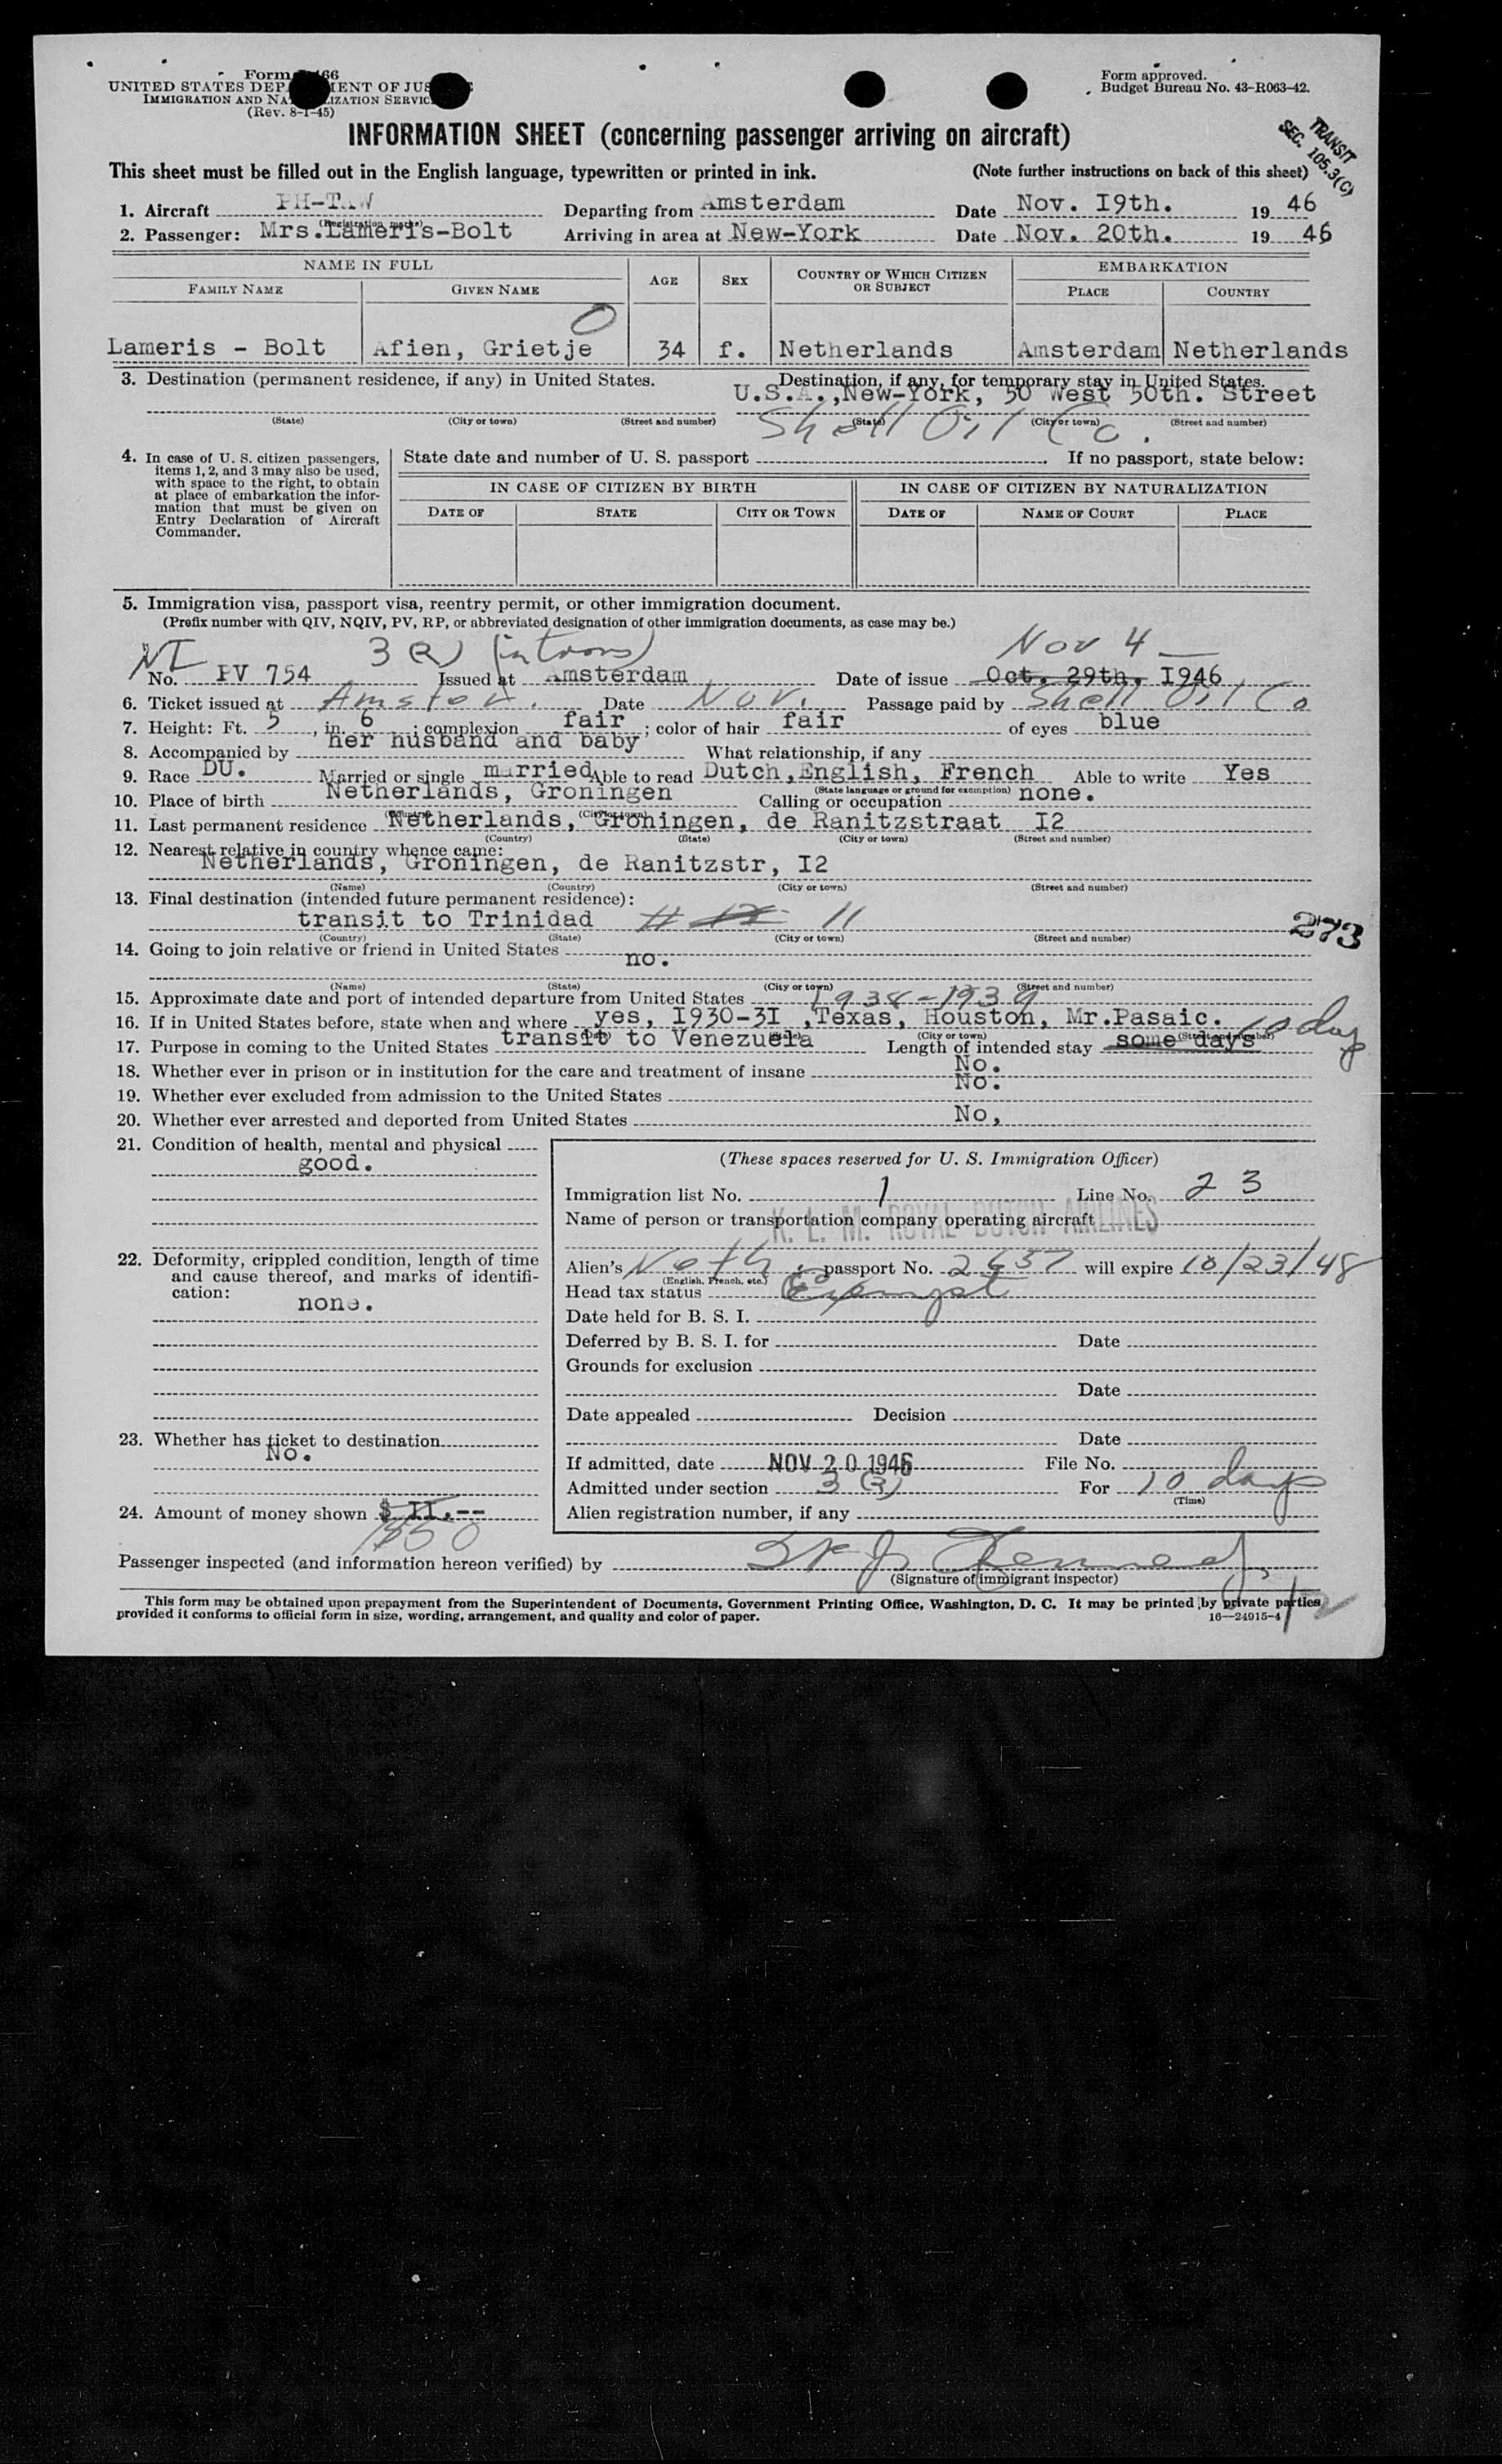 Form 66
UNITED STATES DEP MENT OF JUS
IMMIGRATION AND NA IZATION SERVIC
(Rev. 8-1-45)
Form approved.
Budget Bureau No. 43-R063-42.
INFORMATION SHEET (concerning passenger arriving on aircraft)
TRANSIT
SEC. 105.3(C)
This sheet must be filled out in the English language, typewritten or printed in ink. (Note further instructions on back of this sheet)
1. Aircraft PH-TAW Departing from Amsterdam Date Nov. I9th. 19 46
(Registration mark)
2. Passenger: Mrs.Lameris-Bolt Arriving in area at New-York Date Nov. 20th. 19 46
NAME IN FULL AGE SEX COUNTRY OF WHICH CITIZEN OR SUBJECT EMBARKATION
FAMILY NAME GIVEN NAME PLACE COUNTRY
0
Lameris - Bolt Afien, Grietje 34 f. Netherlands Amsterdam Netherlands
3. Destination (permanent residence, if any) in United States. Destination, if any, for temporary stay in United States.
U.S.A.,New-York, 50 West 50th. Street
(State) (City or town) (Street and number) (State) (City or town) (Street and number)
Shell Oil Co.
4. In case of U. S. citizen passengers, items 1, 2, and 3 may also be used, with space to the right, to obtain at place of embarkation the information that must be given on Entry Declaration of Aircraft Commander.
State date and number of U. S. passport If no passport, state below:
IN CASE OF CITIZEN BY BIRTH IN CASE OF CITIZEN BY NATURALIZATION
DATE OF STATE CITY OR TOWN DATE OF NAME OF COURT PLACE
5. Immigration visa, passport visa, reentry permit, or other immigration document.
(Prefix number with QIV, NQIV, PV, RP, or abbreviated designation of other immigration documents, as case may be.)
NI 3(2) (in trans) Nov 4
No. PV 754 Issued at Amsterdam Date of issue Oct. 29th. I946
6. Ticket issued at Amster. Date Nov. Passage paid by Shell Oil Co
7. Height: Ft. 5, in. 6; complexion fair; color of hair fair of eyes blue
8. Accompanied by her husband and baby What relationship, if any
9. Race DU. Married or single married Able to read Dutch,English, French Able to write Yes
(State language or ground for exemption)
10. Place of birth Netherlands, Groningen Calling or occupation none.
(Country) (City or town)
11. Last permanent residence Netherlands, Groningen, de Ranitzstraat I2
(Country) (State) (City or town) (Street and number)
12. Nearest relative in country whence came:
Netherlands, Groningen, de Ranitzstr, I2
(Name) (Country) (City or town) (Street and number)
13. Final destination (intended future permanent residence):
transit to Trinidad # 12 11 273
(Country) (State) (City or town) (Street and number)
14. Going to join relative or friend in United States
no.
(Name) (State) (City or town) (Street and number)
15. Approximate date and port of intended departure from United States
1938-1939
16. If in United States before, state when and where yes, I930-3I ,Texas, Houston, Mr.Pasaic.
(Date) (State) (City or town) (Street and number)
17. Purpose in coming to the United States transit to Venezuela Length of intended stay some days 10 day
18. Whether ever in prison or in institution for the care and treatment of insane No.
19. Whether ever excluded from admission to the United States No.
20. Whether ever arrested and deported from United States No,
21. Condition of health, mental and physical
good.
(These spaces reserved for U. S. Immigration Officer)
Immigration list No. 1 Line No. 23
Name of person or transportation company operating aircraft
K. L. M. ROYAL DUTCH AIRLINES
22. Deformity, crippled condition, length of time and cause thereof, and marks of identification:
none.
Alien's Neth passport No. 2657 will expire 10/23/48
(English, French, etc.)
Head tax status Exempt
Date held for B. S. I.
Deferred by B. S. I. for Date
Grounds for exclusion
Date
Date appealed Decision
23. Whether has ticket to destination
No.
Date
If admitted, date NOV 20 1946 File No.
Admitted under section 3 (3) For 10 days
(Time)
24. Amount of money shown $ II.--
Alien registration number, if any
Passenger inspected (and information hereon verified) by
(Signature of immigrant inspector)
This form may be obtained upon prepayment from the Superintendent of Documents, Government Printing Office, Washington, D. C. It may be printed by private parties
provided it conforms to official form in size, wording, arrangement, and quality and color of paper.
16—24915-4